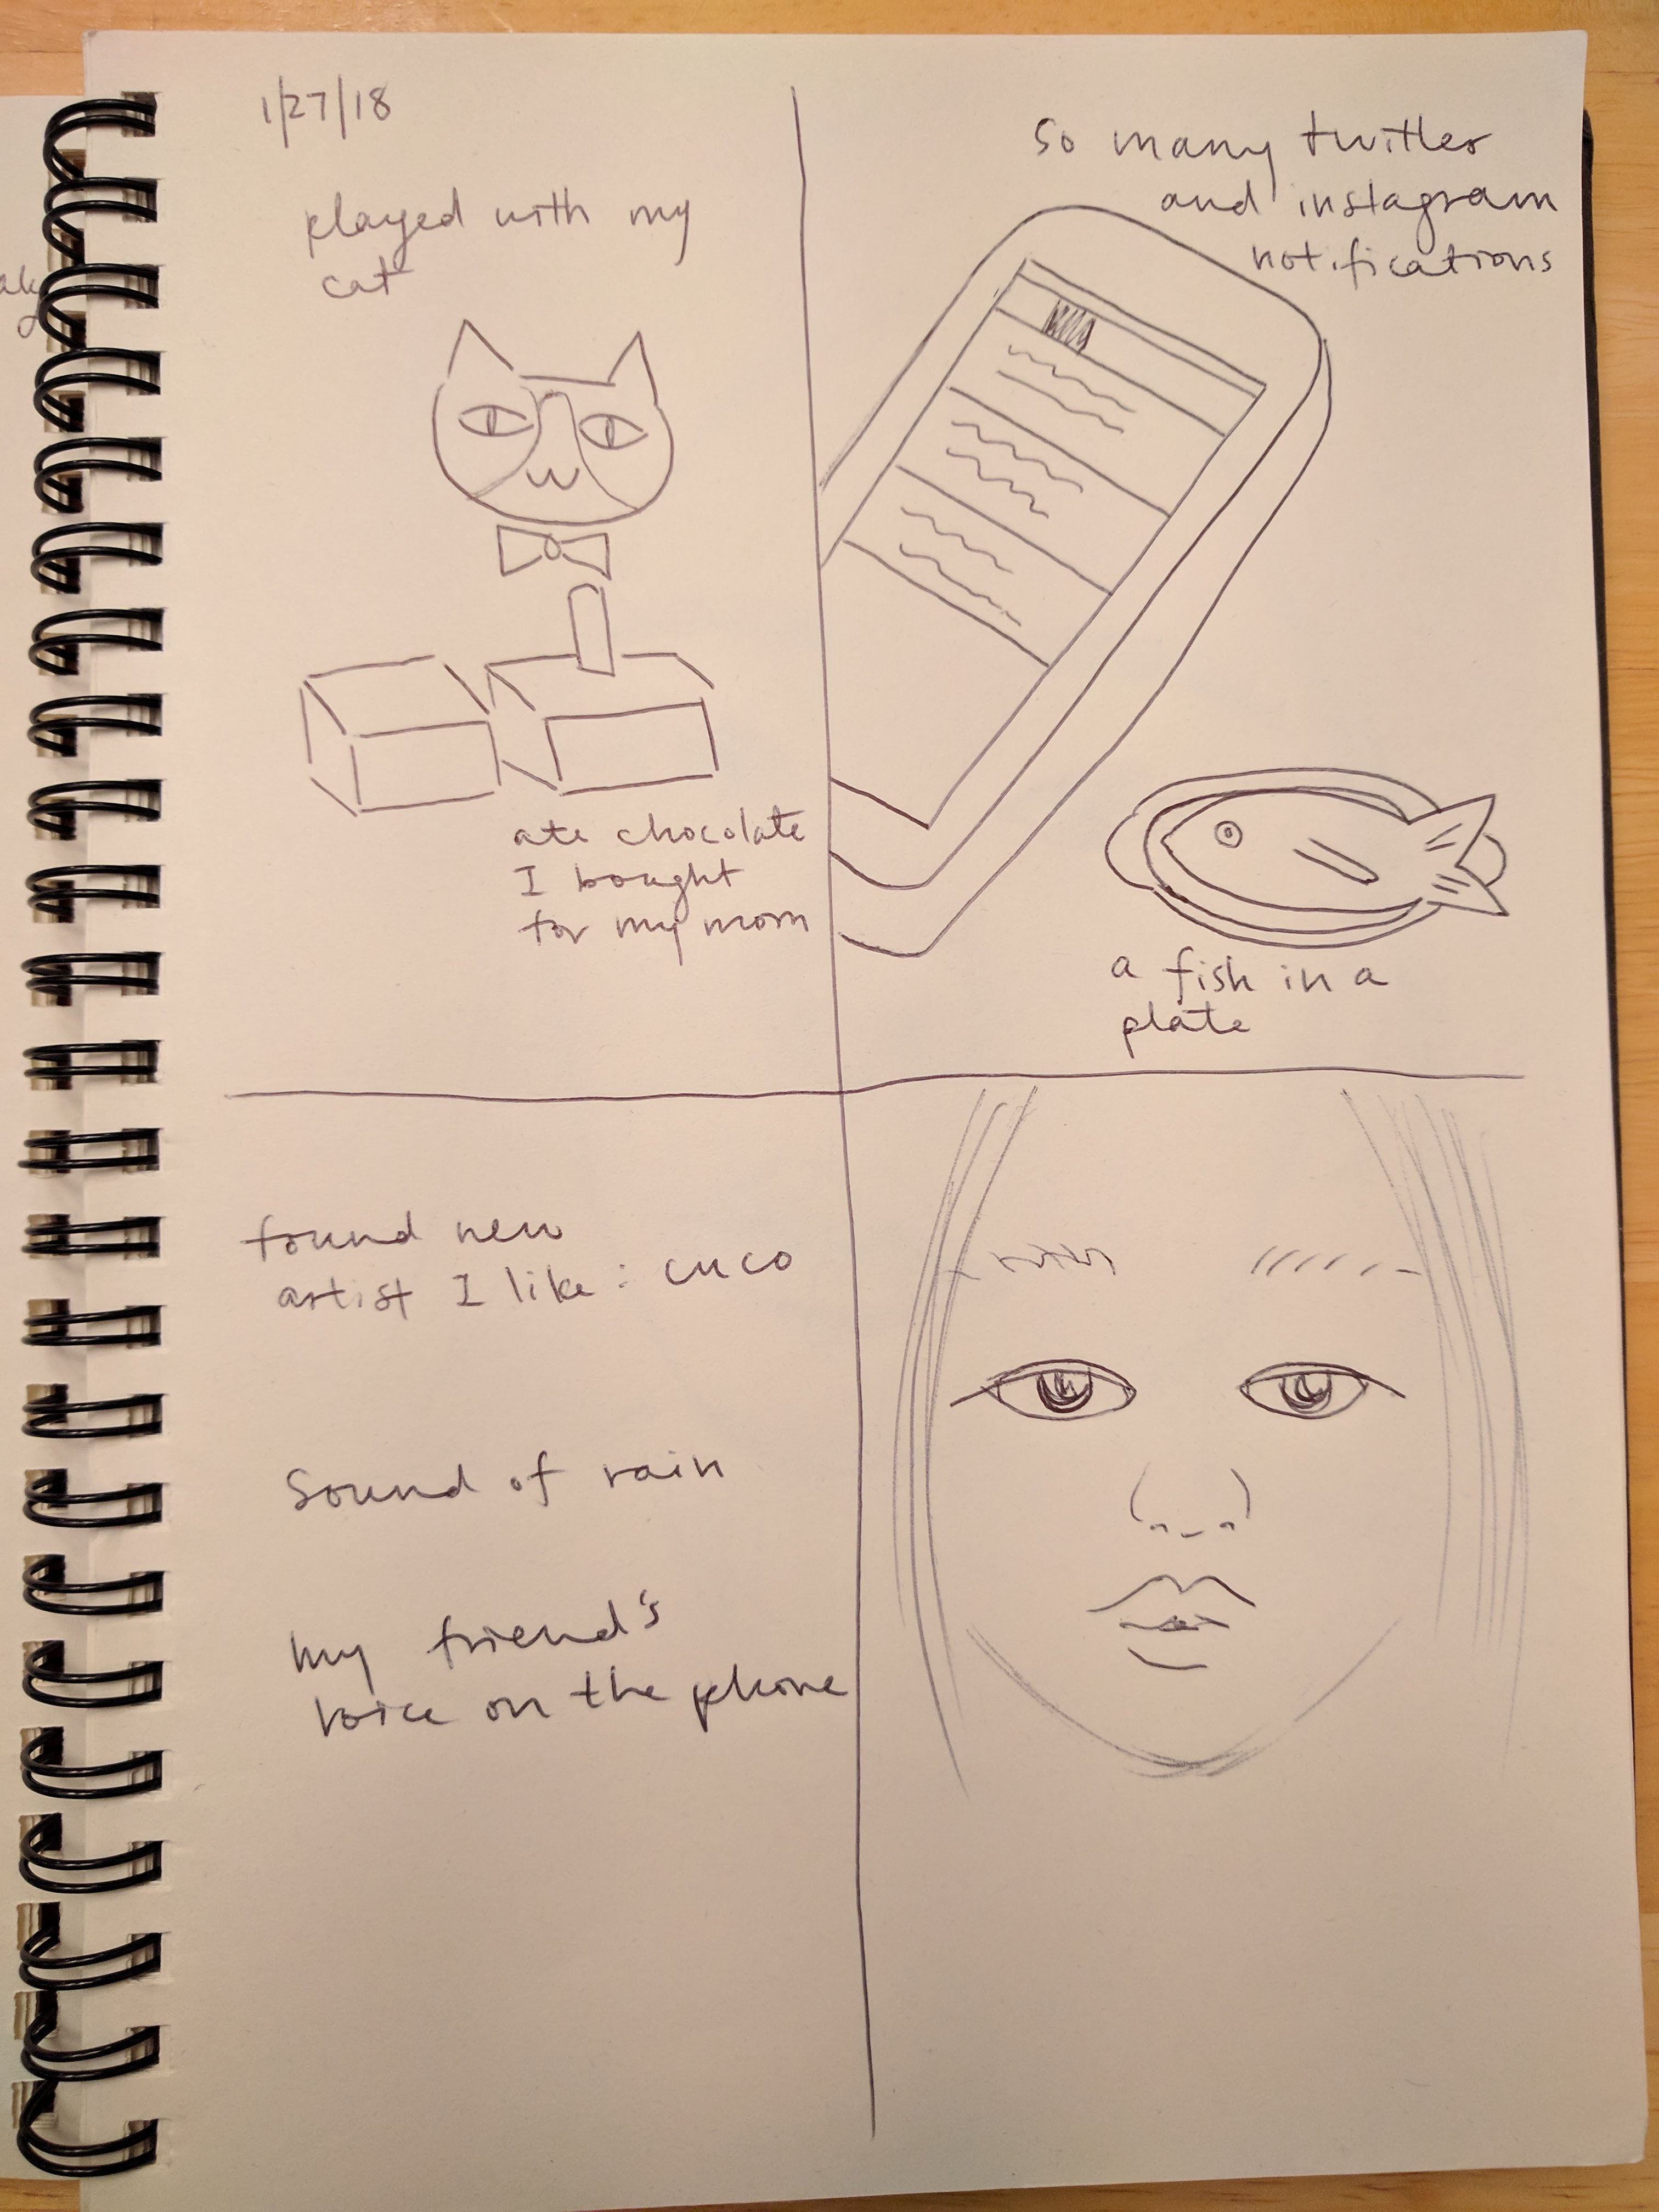 1/27/18
played with my
cat
ate chocolate
I bought
for my mom
so many twitter
and instagram
notifications
a fish in a
plate
found new
artist I like: cuco
Sound of rain
my friend's
voice on the phone